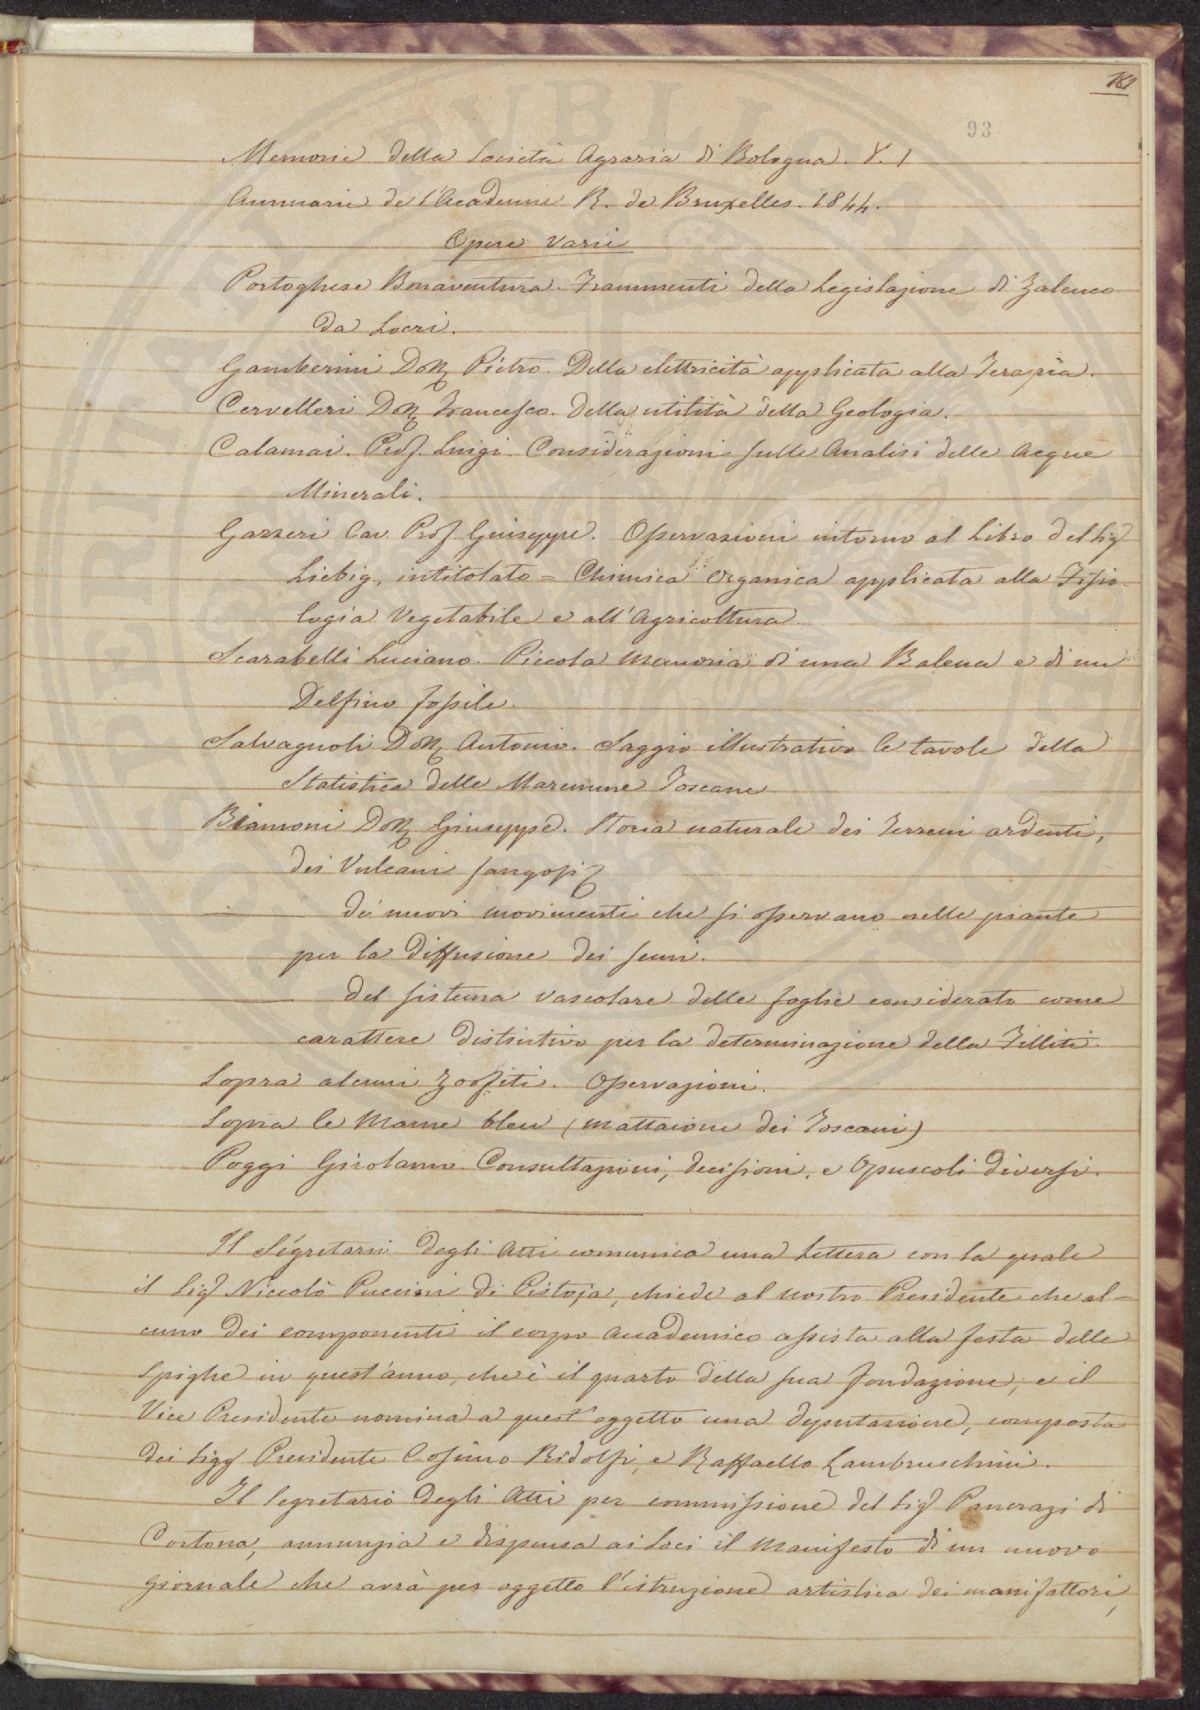 181
93
Memorie della Società Agraria di Bologna. V. 1
Annuario de l'Academie R. de Bruxelles. 1844.
Opere varie
Portoghese Bonaventura. Frammenti della Legislazione di Zaleuco
da Locri.
Gamberini Dott Pietro. Della elettricità applicata alla Terapia.
Cervelleri Dott Francesco. Della utilità della Geologia.
Calamai. Prof. Luigi. Considerazioni sulle Analisi delle Acque
Minerali.
Gazzeri Cav. Prof Giuseppe. Osservazioni intorno al Libro del Sig
Liebig, intitolato = Chimica organica applicata alla Fisio-
logia Vegetabile e all'Agricoltura
Scarabelli Luciano. Piccola Memoria di una Balena e di un
Delfino fossile.
Salvagnoli Dott Antonio. Saggio illustrativo le tavole della
Statistica delle Maremme Toscane
Bianconi Dott Giuseppe. Storia naturale dei Terreni ardenti,
dei Vulcani fangosi
— de' nuovi movimenti che si osservano nelle piante
per la diffusione dei semi.
— del sistema vascolare delle foglie considerato come
carattere distintivo per la determinazione della Filliti.
Sopra alcuni Zoofiti. Osservazioni.
Sopra le Marne bleu (mattaione dei Toscani)
Poggi Girolamo. Consultazioni, decisioni, e Opuscoli diversi.
Il Segretario degli Atti comunica una Lettera con la quale
il Sig Niccolò Puccini di Pistoja, chiede al nostro Presidente che al-
cuno dei componenti il corpo Accademico assista alla festa delle
Spighe in quest'anno, che è il quarto della sua fondazione, e il
Vice Presidente nomina a quest'oggetto una deputazione, composta
dei Sigg Presidente Cosimo Ridolfi, e Raffaello Lambruschini.
Il Segretario degli Atti per commissione del Sig Pancrazi di
Cortona, annunzia e dispensa ai Soci il Manifesto di un nuovo
Giornale che avrà per oggetto l'istruzione artistica dei manifattori,